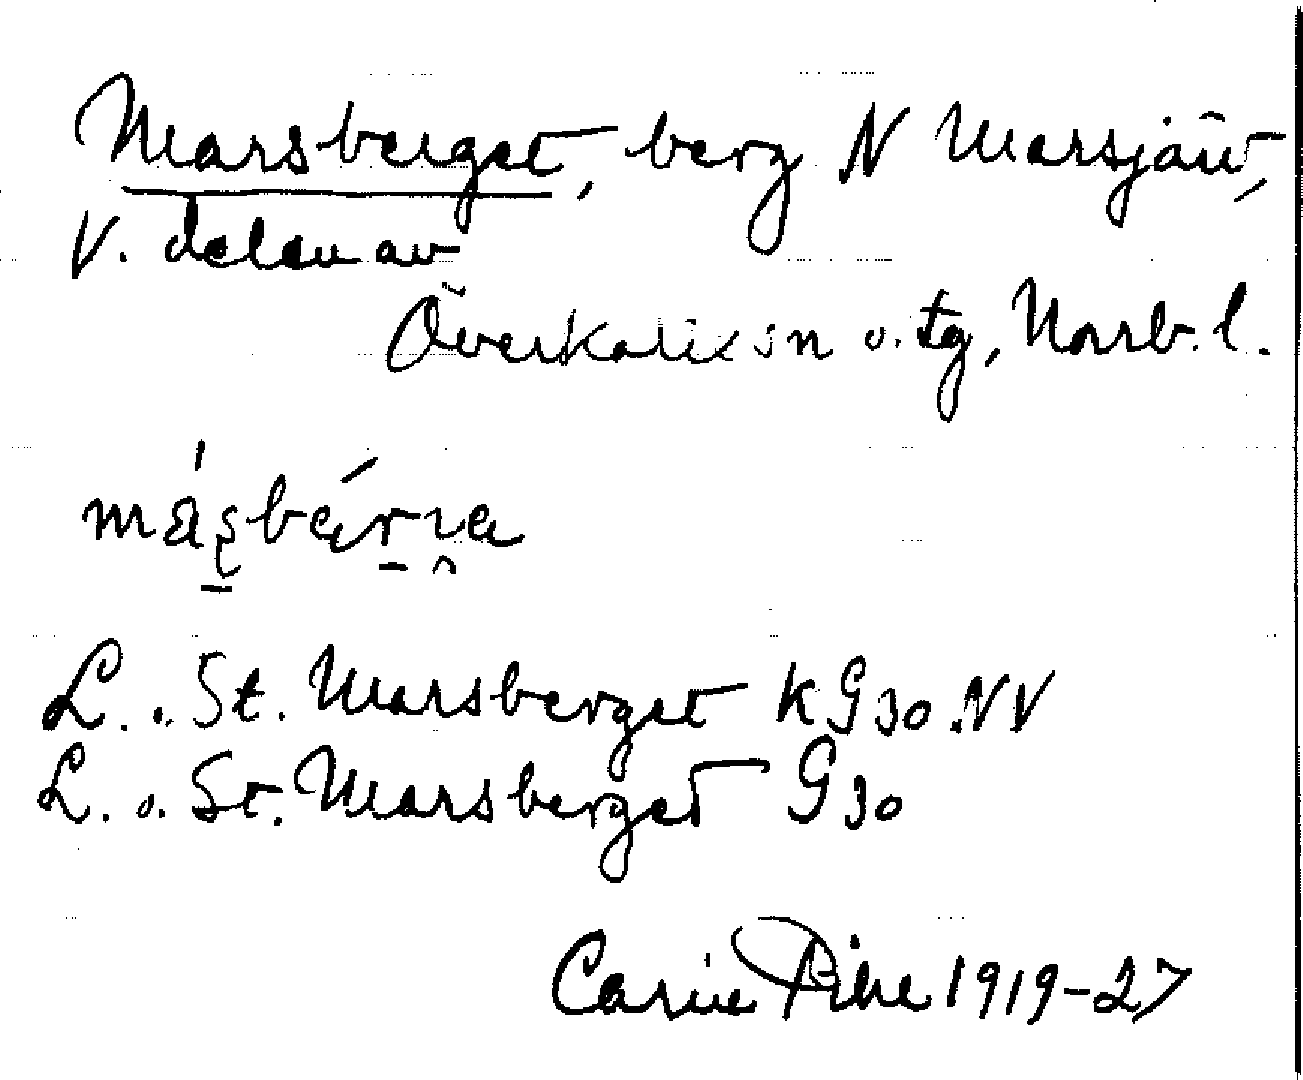 Marsberget, berg N Marsjärv,
V. delen av
Överkalix sn o. tg, Norrb. l.
másbärɪe
L. o. St. Marsberget K G 30 NV
L. o. St. Marsberget G 30
Carin Pihl 1919-27